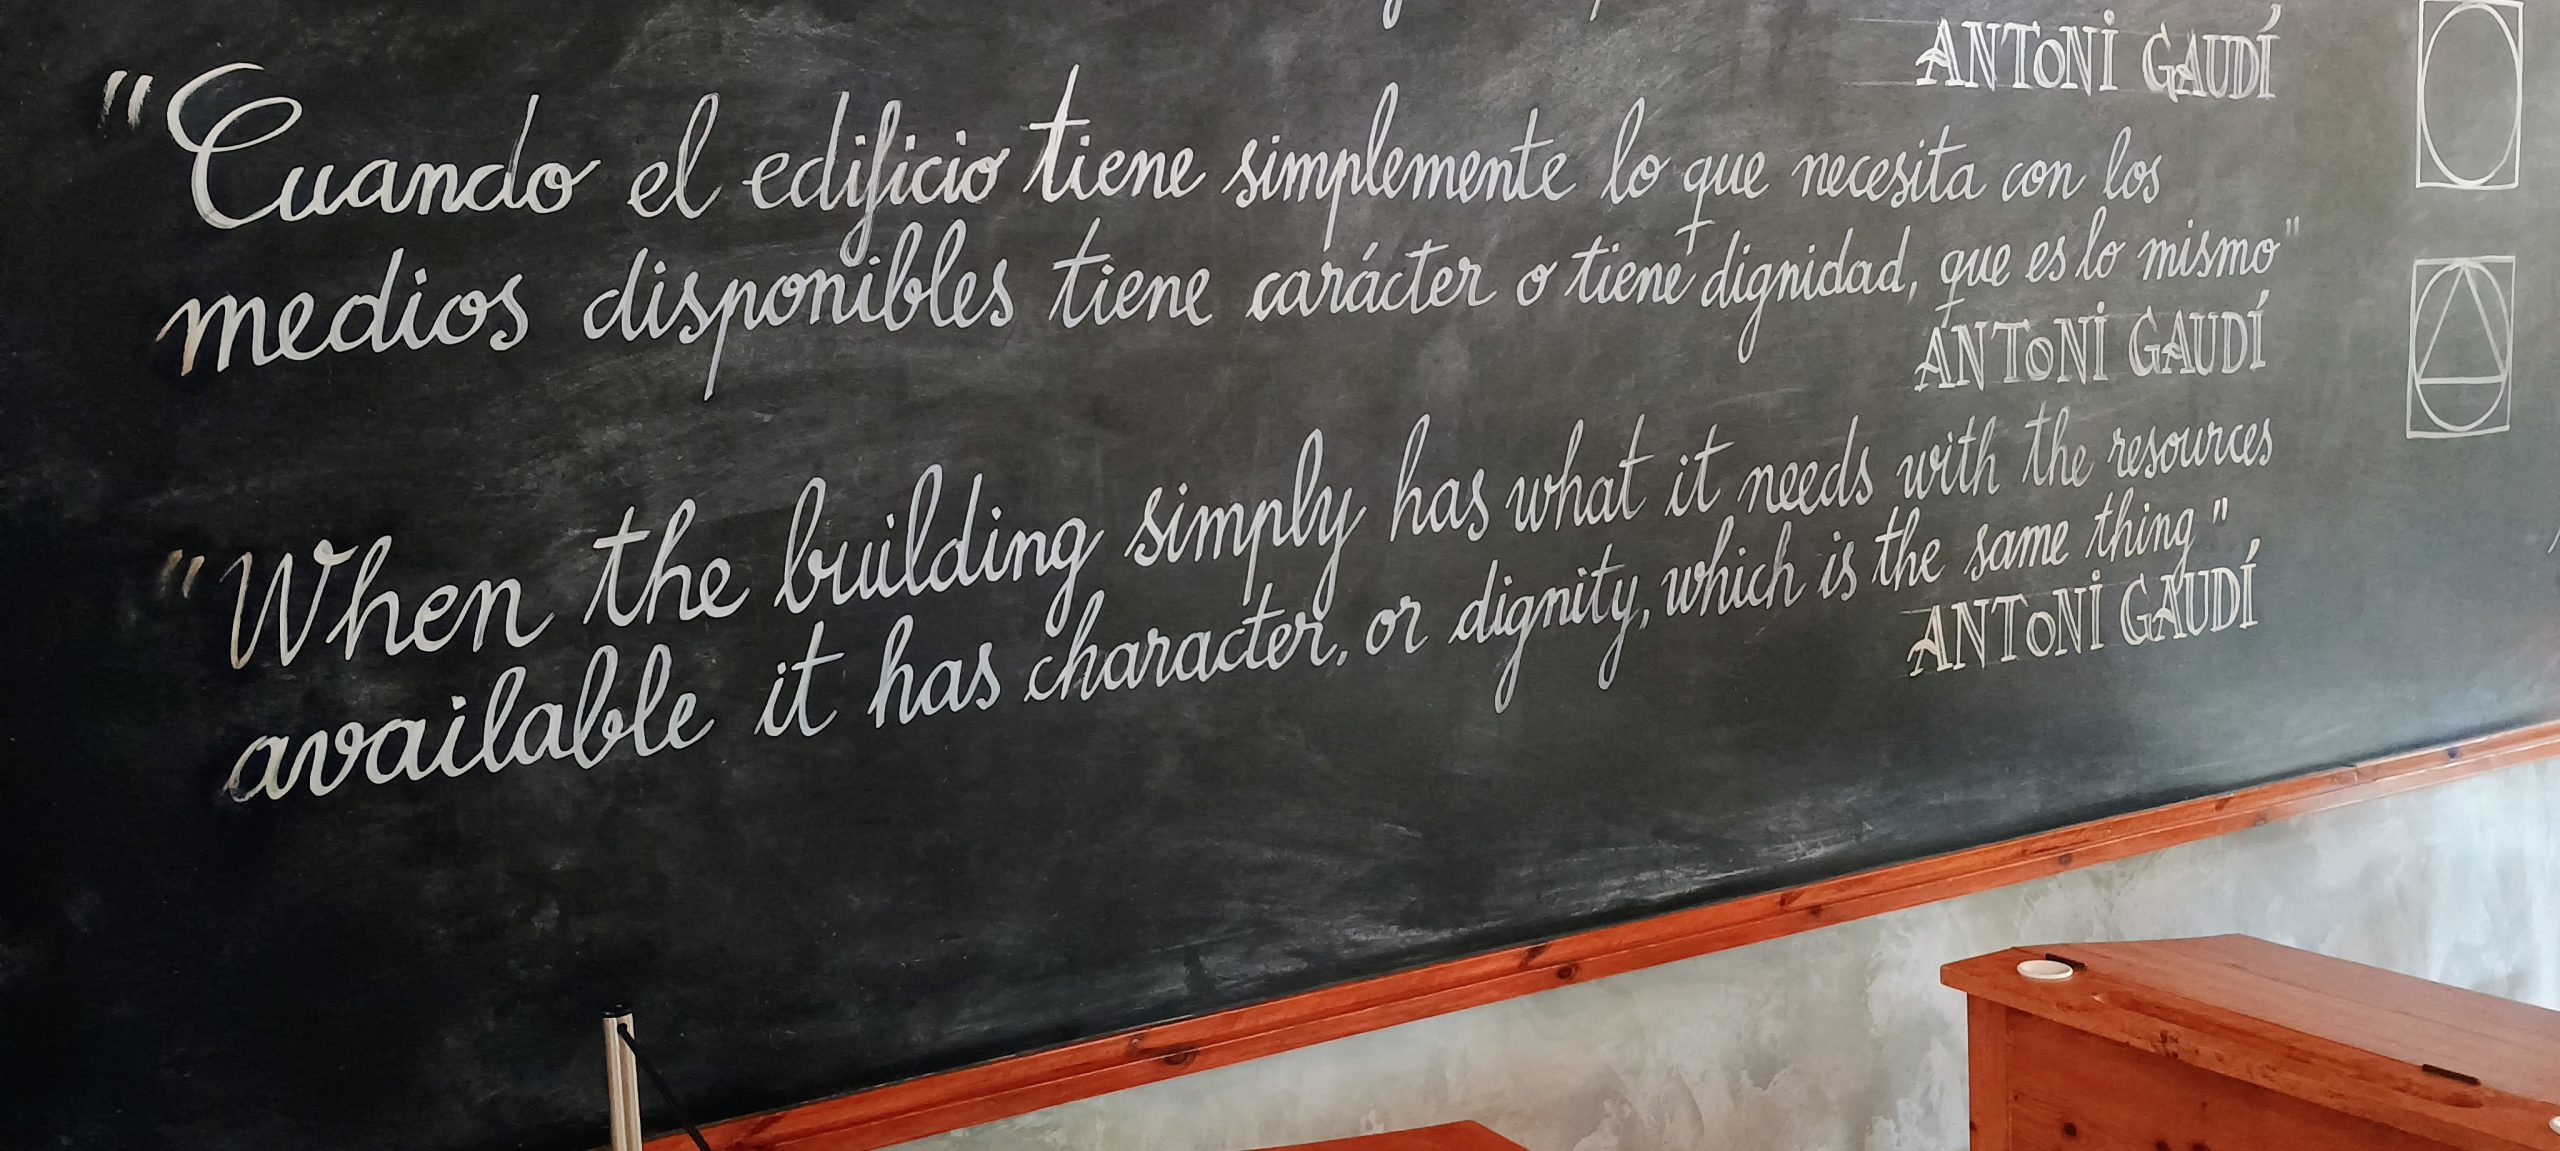 ANTONI GAUDÍ
"Cuando el edificio tiene simplemente lo que necesita con los
medios disponibles tiene carácter o tiene dignidad, que es lo mismo"
ANTONI GAUDÍ
"When the building simply has what it needs with the resources
available it has character, or dignity, which is the same thing"
ANTONI GAUDÍ